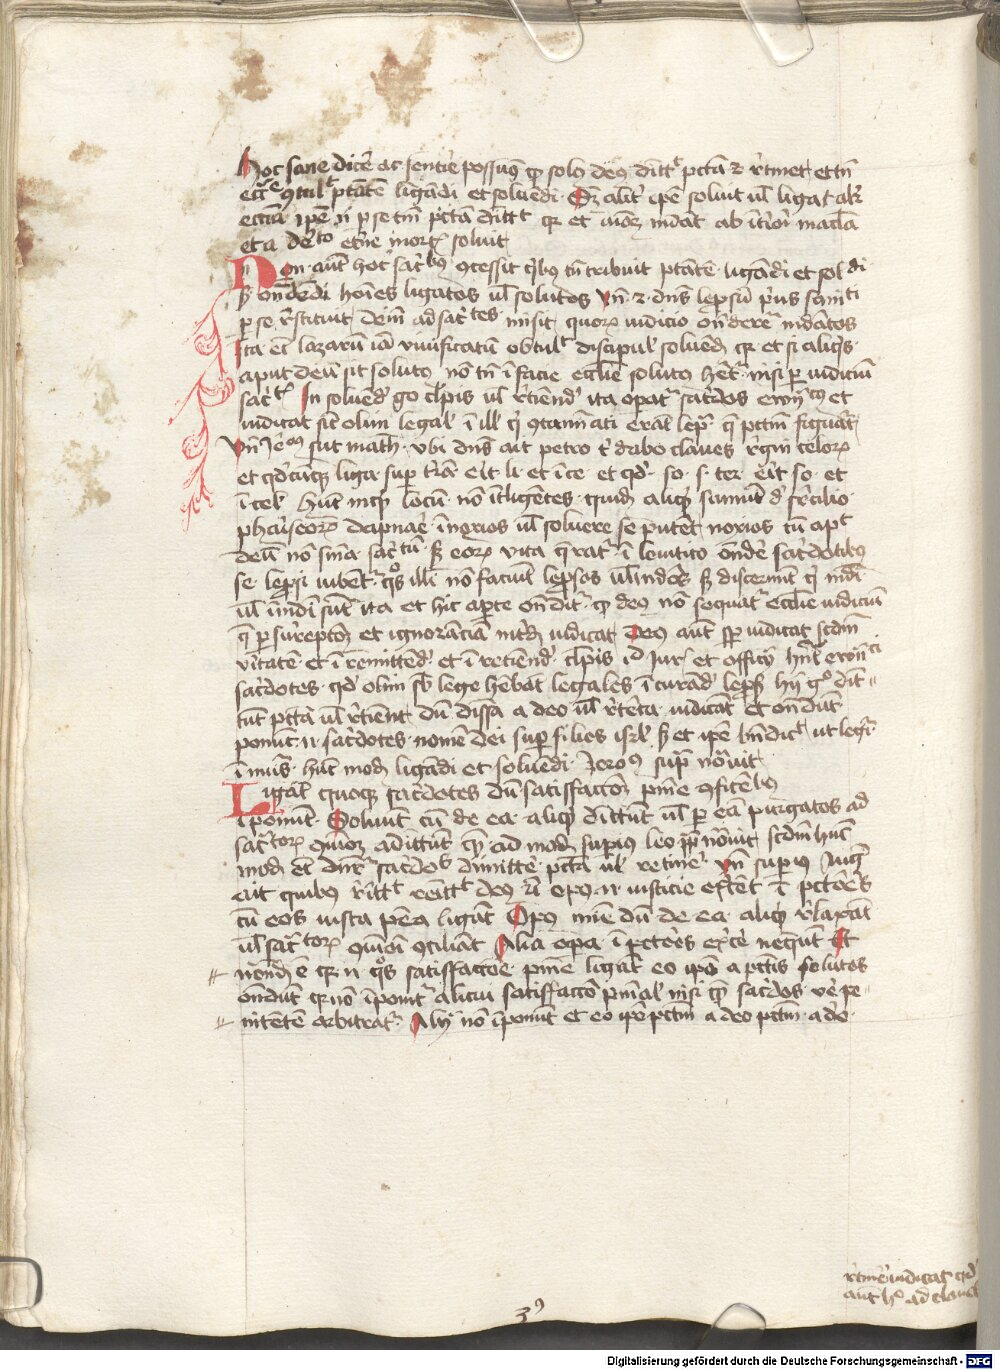 hoc sane dicere ac sentire possumus quod solus deus dimittit peccata et retinet et tamen
ecclesie contulit potestatem ligandi et soluendi Sed aliter ipse soluit uel ligat aliter
ecclesia ipse enim per se tantum peccata dimittit quia et animam mundat ab interiori macula
et a debito eterne mortis soluit
Non autem hoc sacerdotibus concessit quibus tamen tribuit potestatem ligandi et soluendi
ostendendi homines ligatos uel solutos vnde et dominus leprosum prius sanitati
per se restituit deinde ad sacerdotes misit quorum iudicio ostenderetur mundatus
Ita etiam lazarum iam viuificatum obtulit discipulis soluendum quia et si aliquis
aput deum sit solutus non tamen in facie ecclesie solutus habetur nisi per iudicium
sacerdotis In soluendis ergo culpis uel retinendis ita operatur sacerdos ewangelicus et
iudicat sicut olim legalis in illis qui contaminati erant lepra que peccatum figurat
vnde Jeronimus super matheum vbi dominus ait petro tibi dabo claues regni celorum
et quodcunque liga super terram erit li et in ce et quod so s ter erit so et
in cel hunc inquit locum non intelligentes quidam aliquid sumunt de supercilio
phariseorum
deum non sententia sacerdotum sed eorum vita queratur in leuitico ostendere sacerdotibus
se leprosi iubentur quos illi non faciunt leprosos uel mundos sed discernunt qui mundi
uel inmundi sunt ita et hic aperte ostenditur quod deus non sequatur ecclesie iudicium
que per surreptionem et ignoranciam interdum iudicat Deus autem semper iudicat secundum
veritatem et in remittendis et in retinendis culpis id iuris et officii habent ewangelici
sacerdotes quod olim sub lege habebant legales in curandis leprosis hii ergo dimit
tunt peccata uel retinent dum dimissa a deo uel retenta iudicant et ostendunt
ponunt enim sacerdotes nomen dei super filios israel sed et ipse benedicit ut legitur
in numeris hunc modum ligandi et soluendi Jeronimus supra notauit
Ligant quoque sacerdotes dum satisfactionem penitentie confitentibus
inponunt Soluunt cum de ea aliquid dimittunt uel per eam purgatos ad
sacramentorum communionem admittunt quem modum superius leo papa notauit secundum hunc
modum etiam dicuntur sacerdotes dimittere peccata uel retinere vnde superius Augustinus
ait quibus remittit remittit deus etc opus enim iusticie exercent in peccatores
cum eos iusta pena ligant Opus misericordie dum de ea aliquid relaxant
uel sacramentorum communioni conciliant Alia opera in peccatores exercere nequeunt Et
notandum est quia enim quos satisfactione penitentie ligant eo ipso a peccatis solutos
ostendunt quia non inponitur alicui satisfactio penitentialis nisi quem sacerdos vere pe
nitentem arbitratur Alii non inponunt et eo ipso peccatum a deo
39
Digitalisierung gefördert durch die Deutsche Forschungsgemeinschaft - DFG